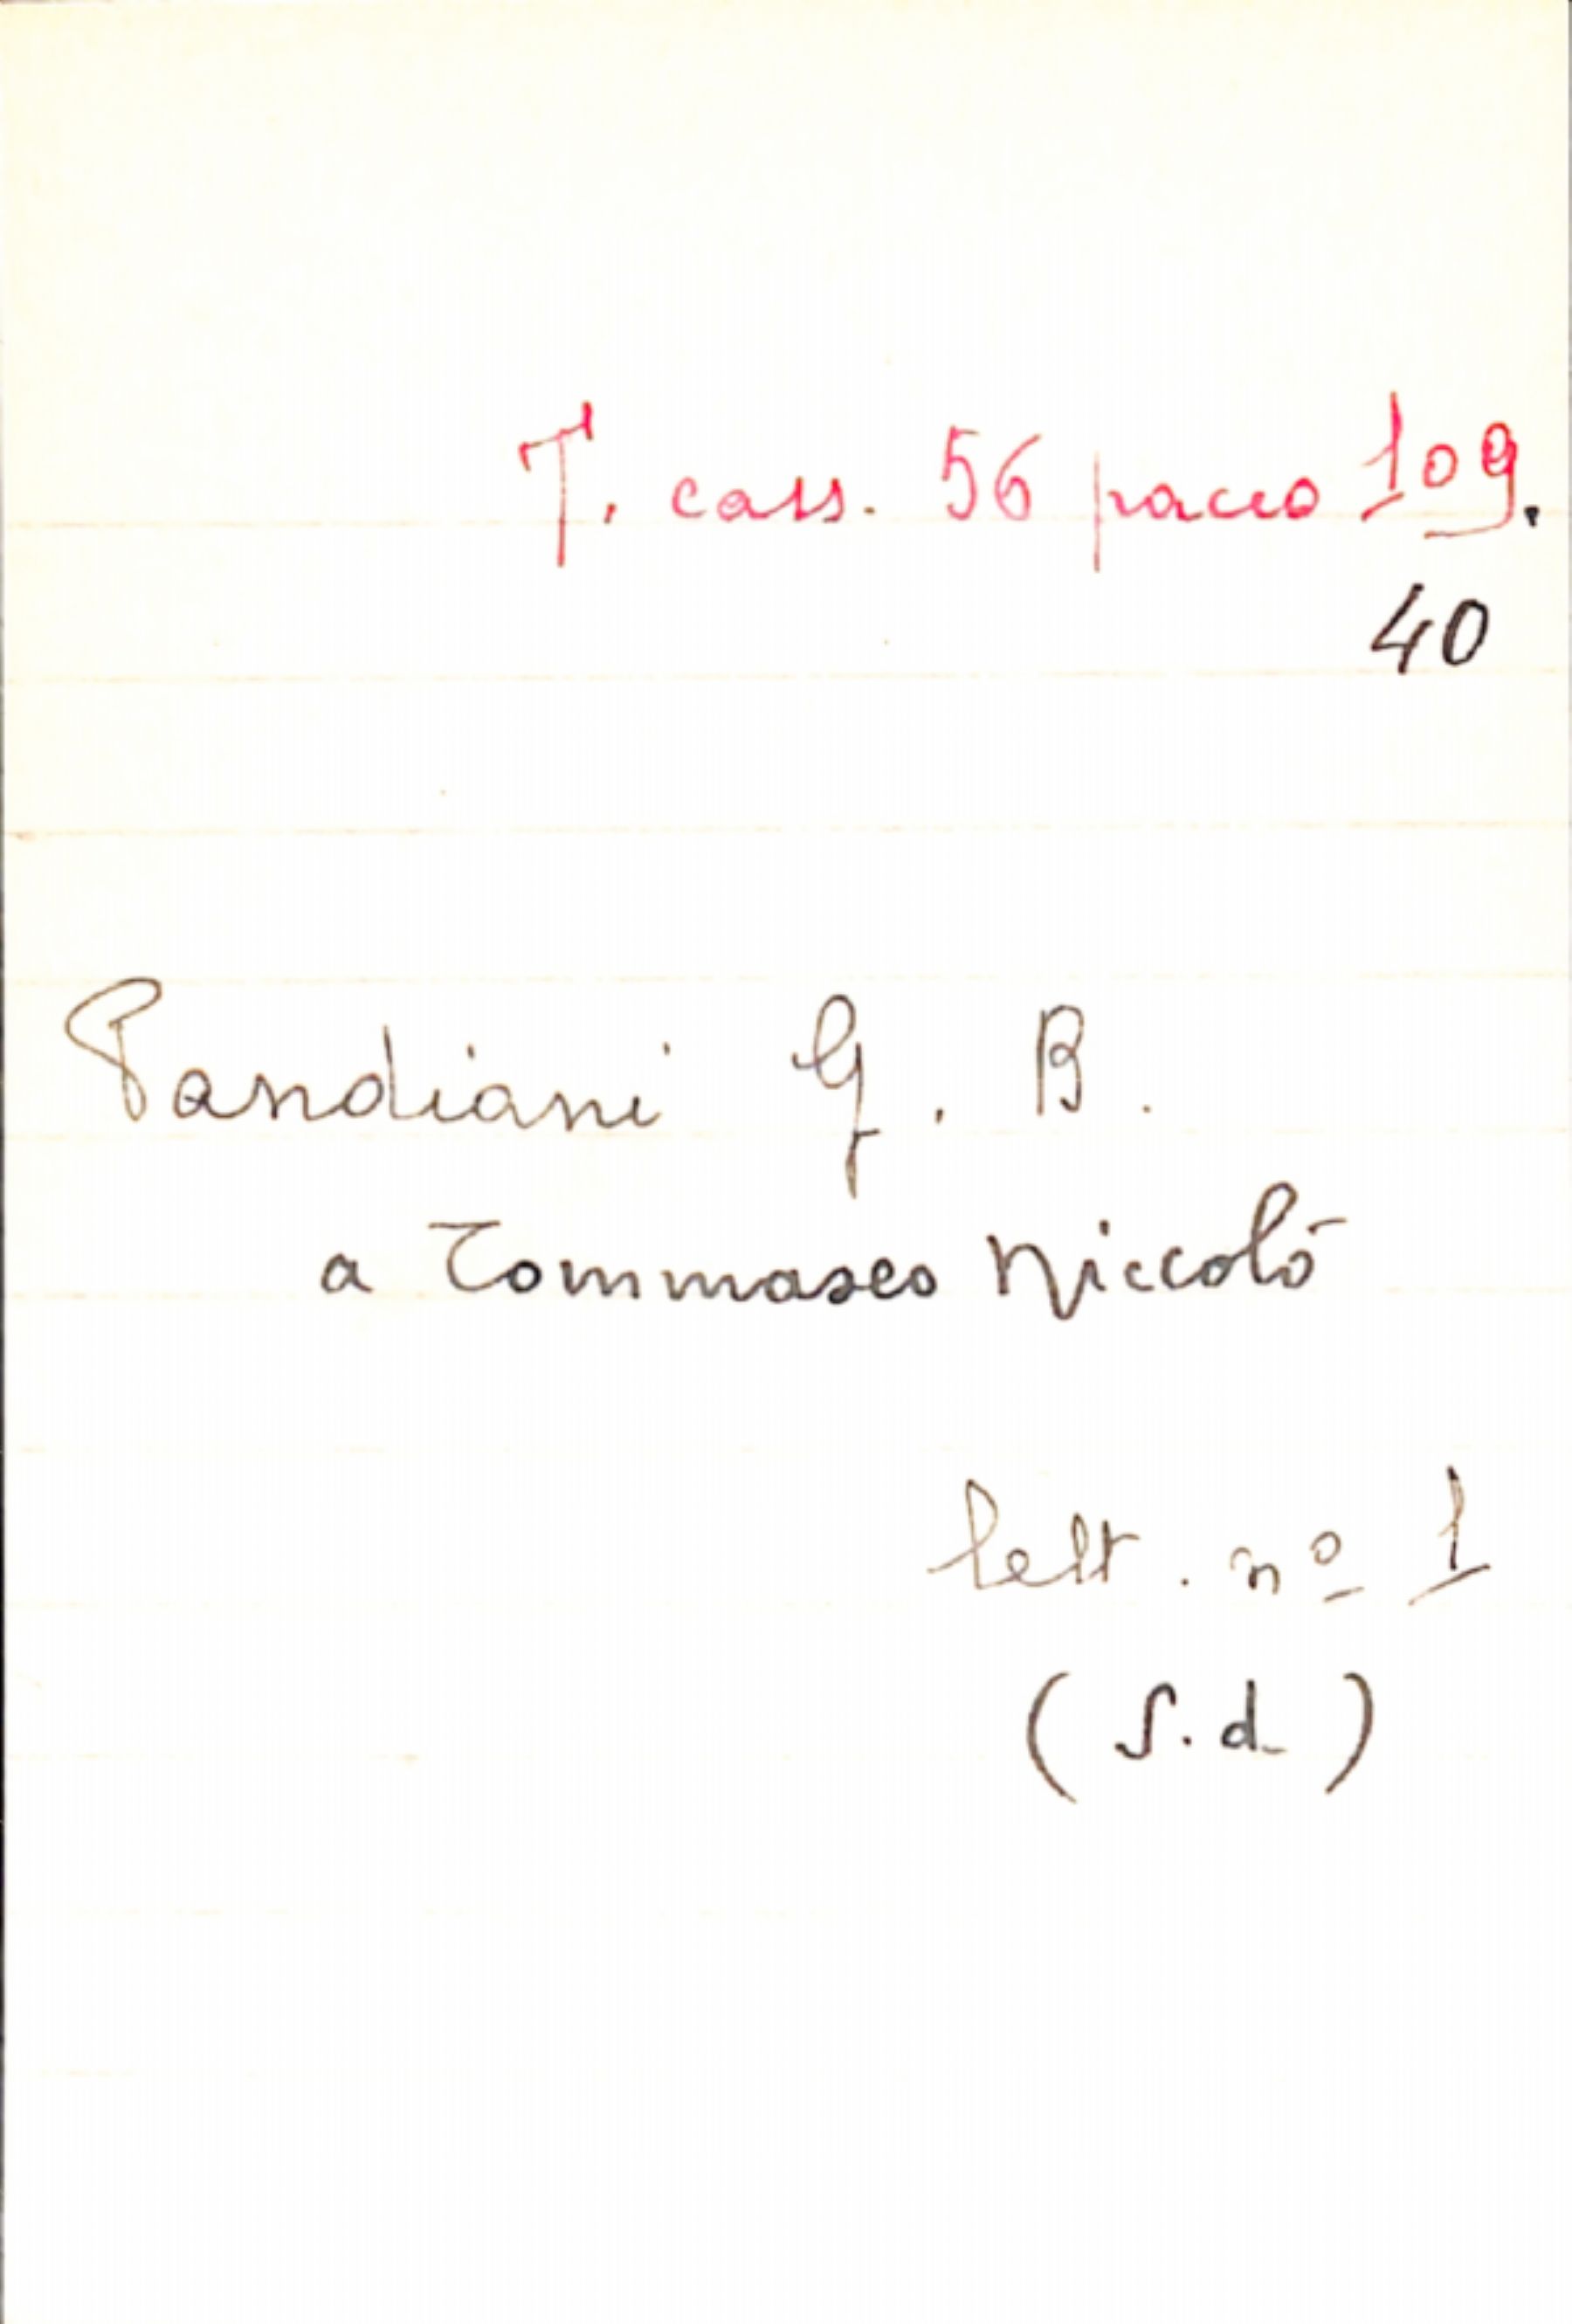 T. cass. 56 pacco 109.
40
Pandiani G. B.
a Tommaseo Niccolò
lett. nº 1
(S.d.)